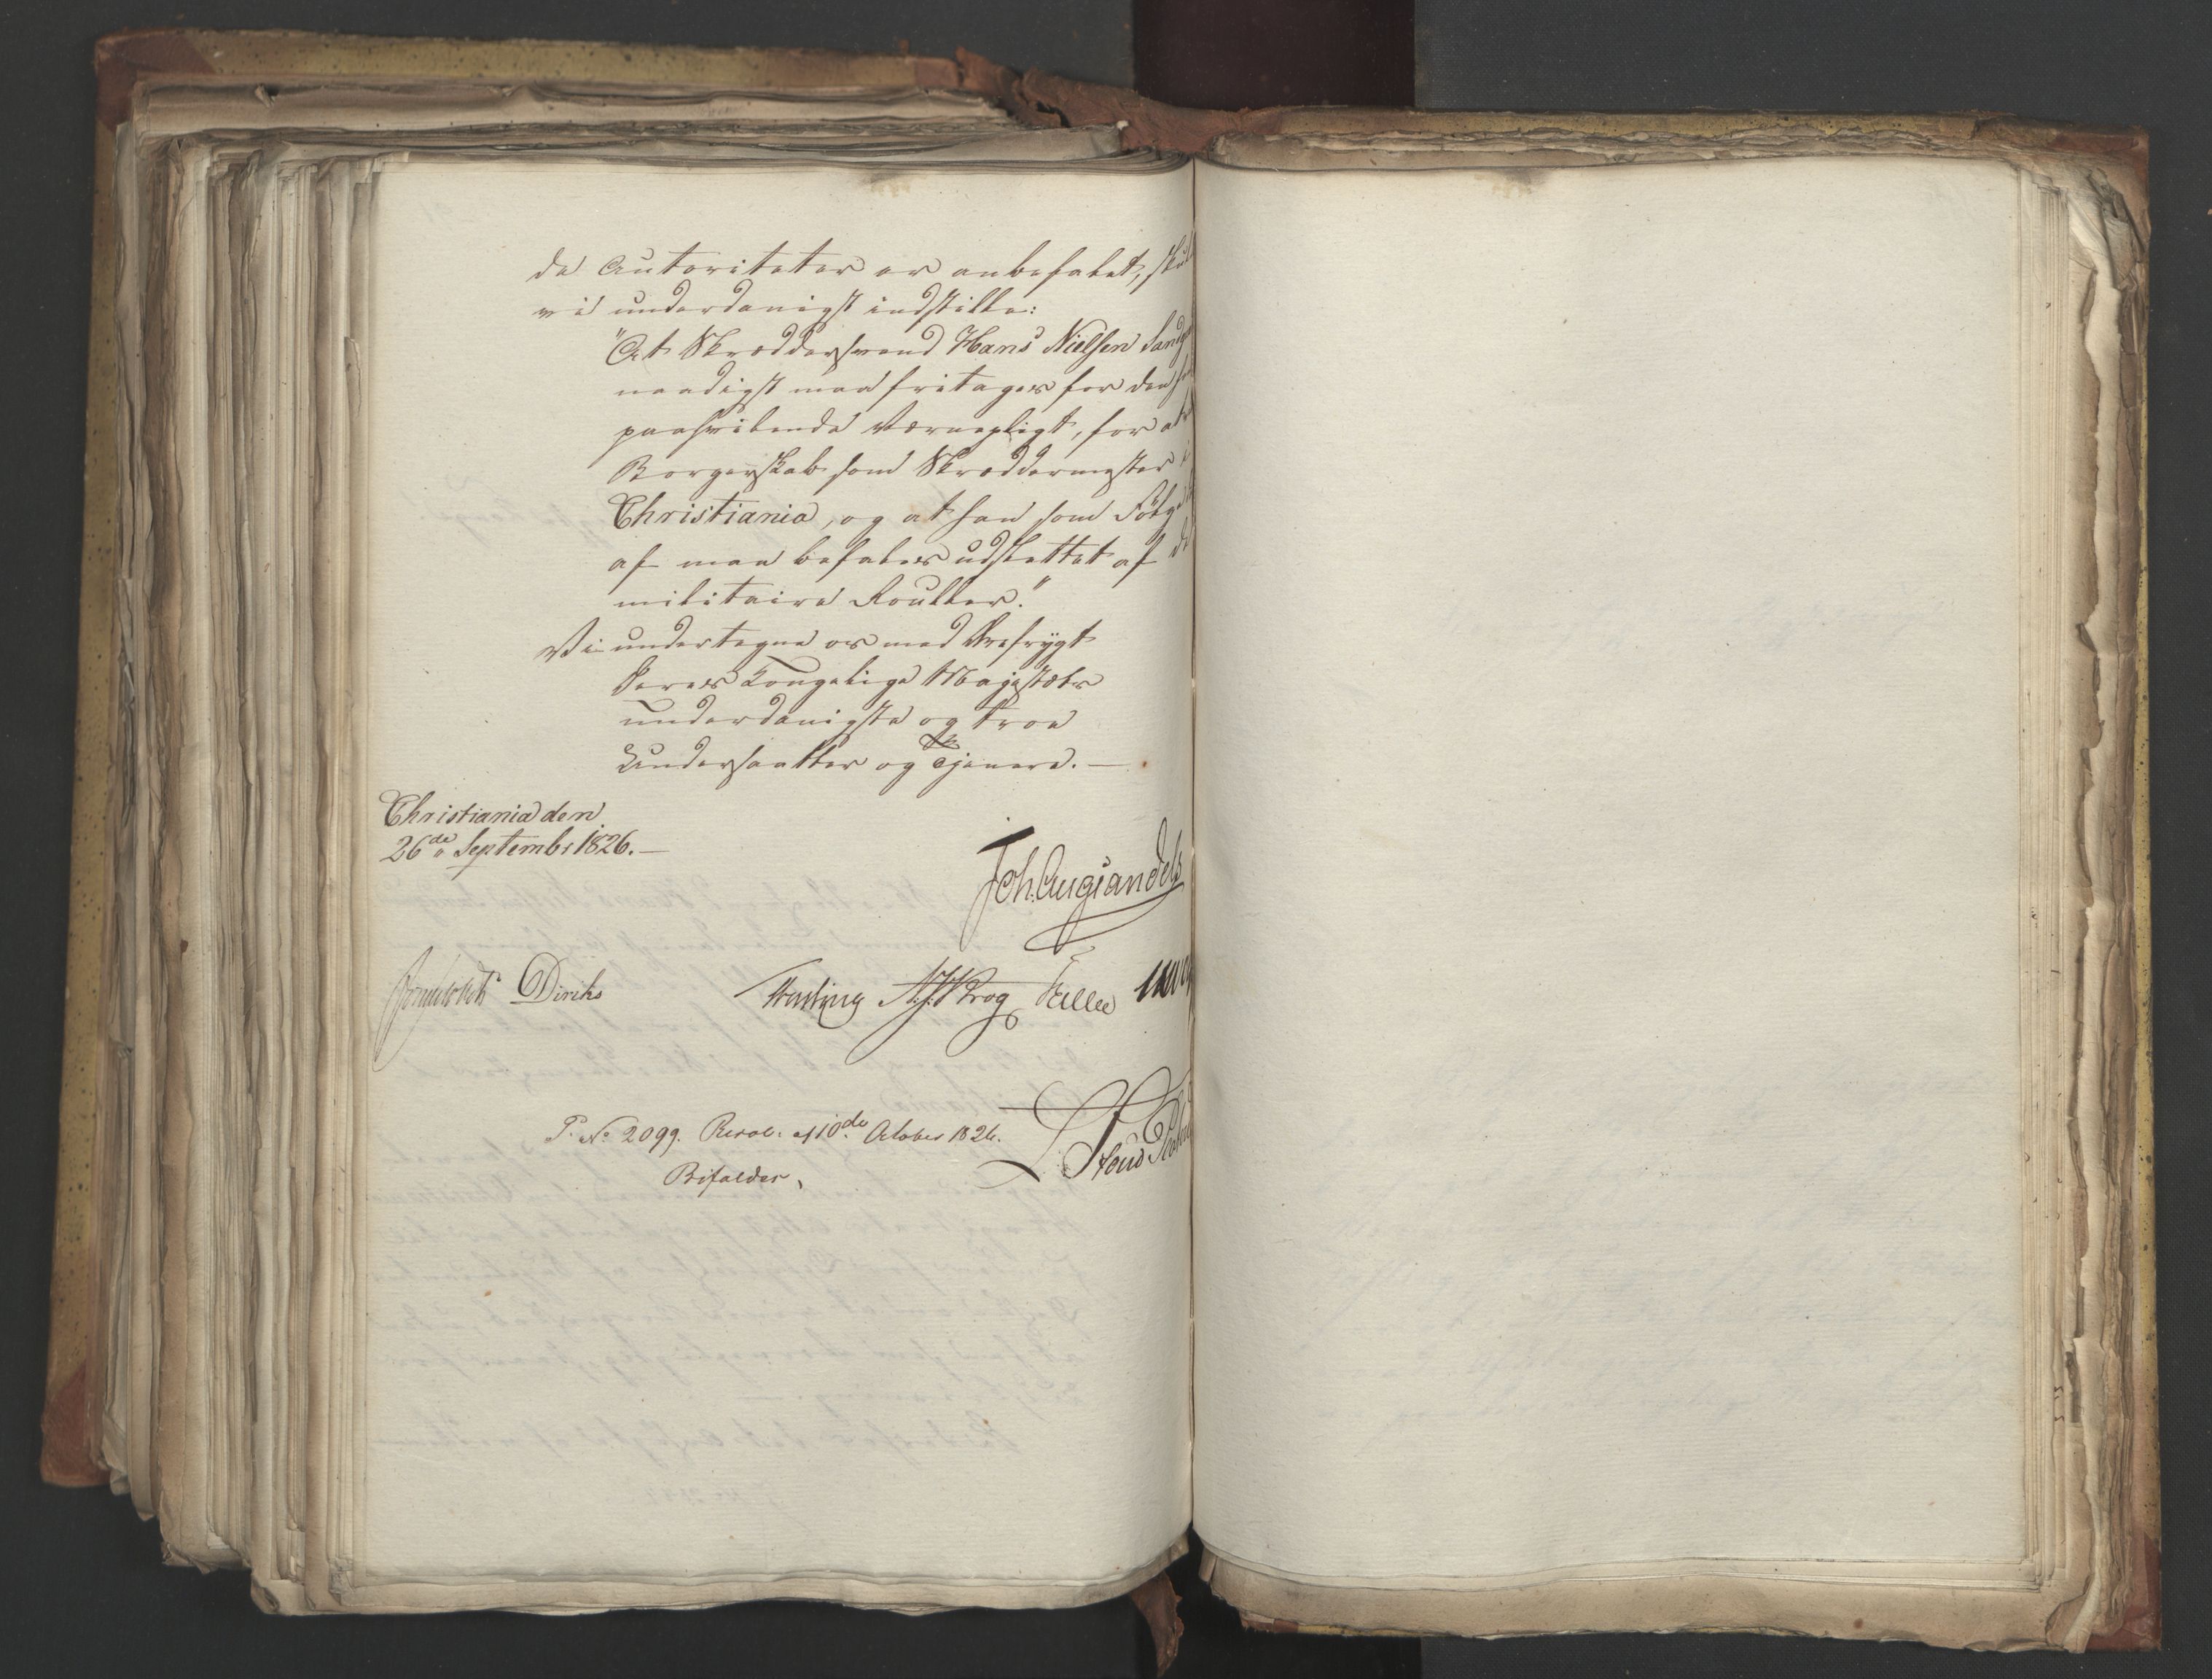 de Autoriteter er anbefalet, skul
vi underdanigst indstille:
"At Skræddersvend Hans Nielsen Sand
naadigst maa fritages for den ham
paahvilende Værnepligt, for at
Borgerskab som Skræddermester i
Christiania, og at han som Følge
af maa befales udslettet af de
militaire Rouller."
Vi undertegne os med Ærefrygt
Deres Kongelige Majestæts
underdanigste og troe
Undersaatter og Tjenere. —
Christiania den
26de Septembr 1826. —
Joh. Aug. Sandels
Diriks
N. J. Krog
P. No 2099. Resol: af 10de October 1826.
Bifaldes,